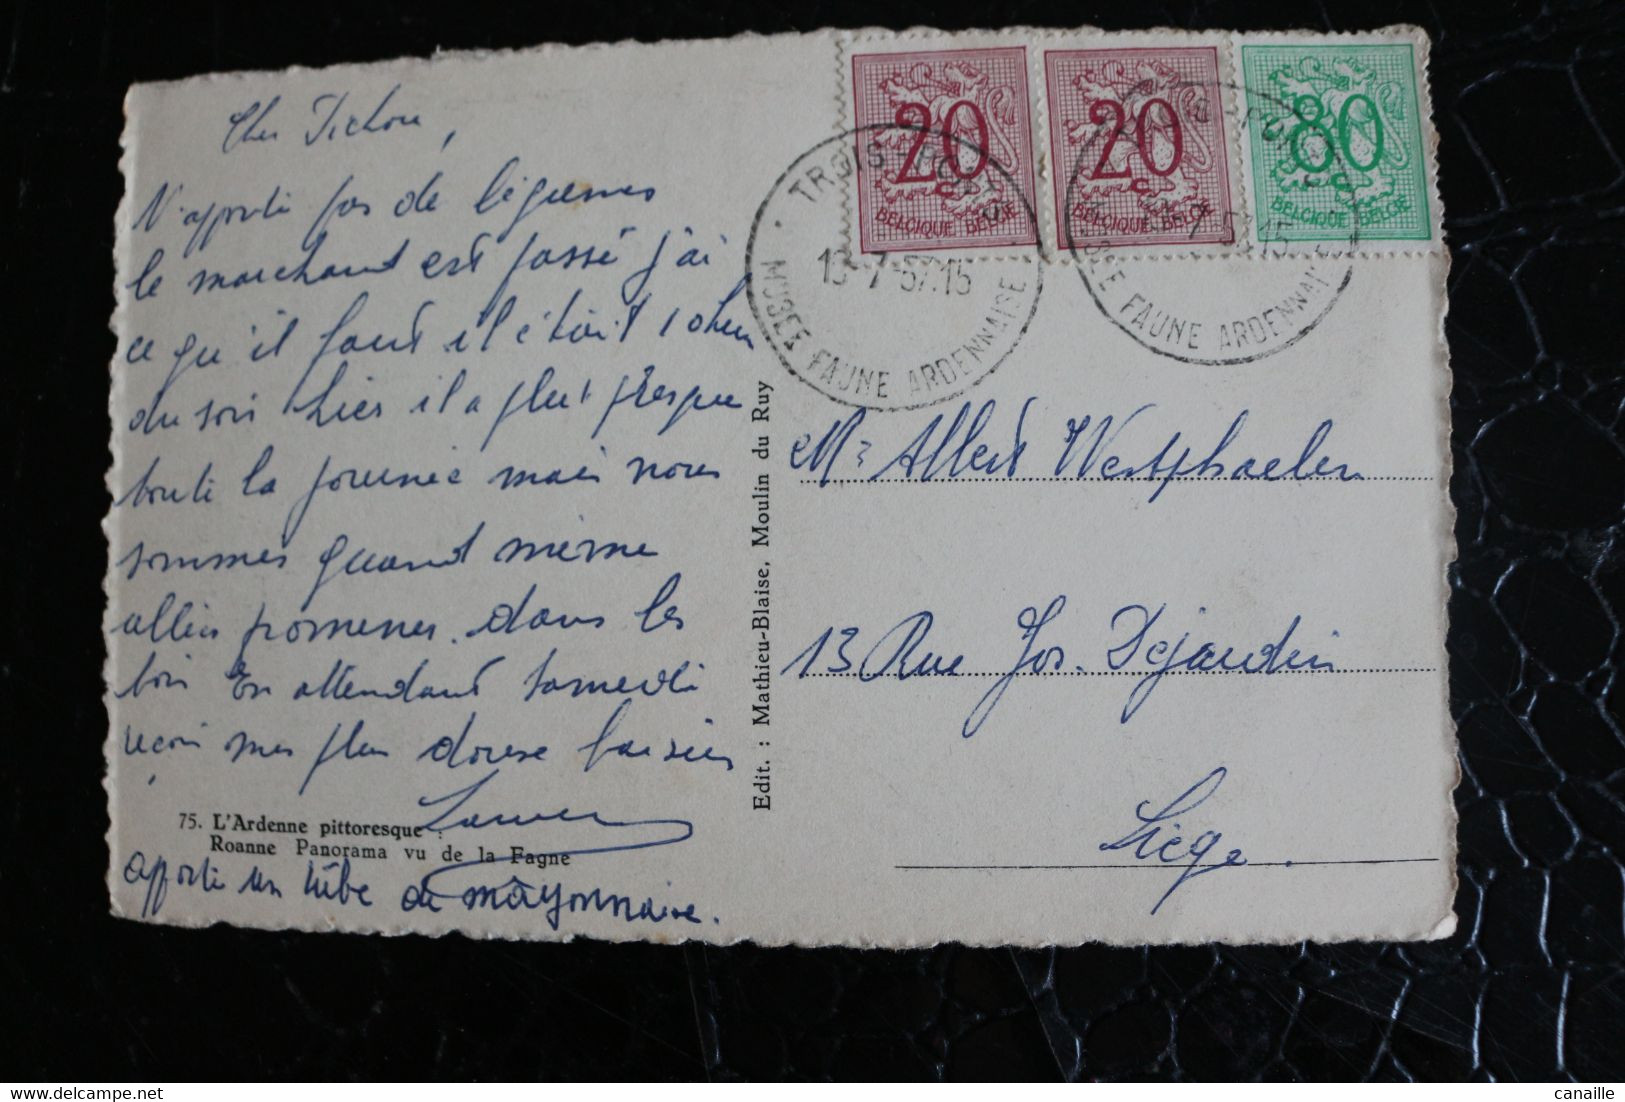 Cher Tichou,
N'apporte pas de légumes
le marchant est passé j'ai
ce qu'il faut il était 1 oheu
du soir hier il a pleut presque
toute la journée mais nous
sommes quand même
allés promener dans les
bois En attendant samedi
reçois mes plus douse baisers
75. L'Ardenne pittoresque :
Roanne Panorama vu de la Fagne
apporte un tube de mayonnaise.
Edit. : Mathieu-Blaise, Moulin du Ruy
20
BELGIQUE BELGIE
20
BELGIQUE BELGIE
80
BELGIQUE BELGIE
TROIS-PONTS
13-7-57.15
MUSEE FAUNE ARDENNAISE
FAUNE ARDENNAI
Mr Albert Westphaelen
13 Rue Jos. Dejardin
Liège.
canaille